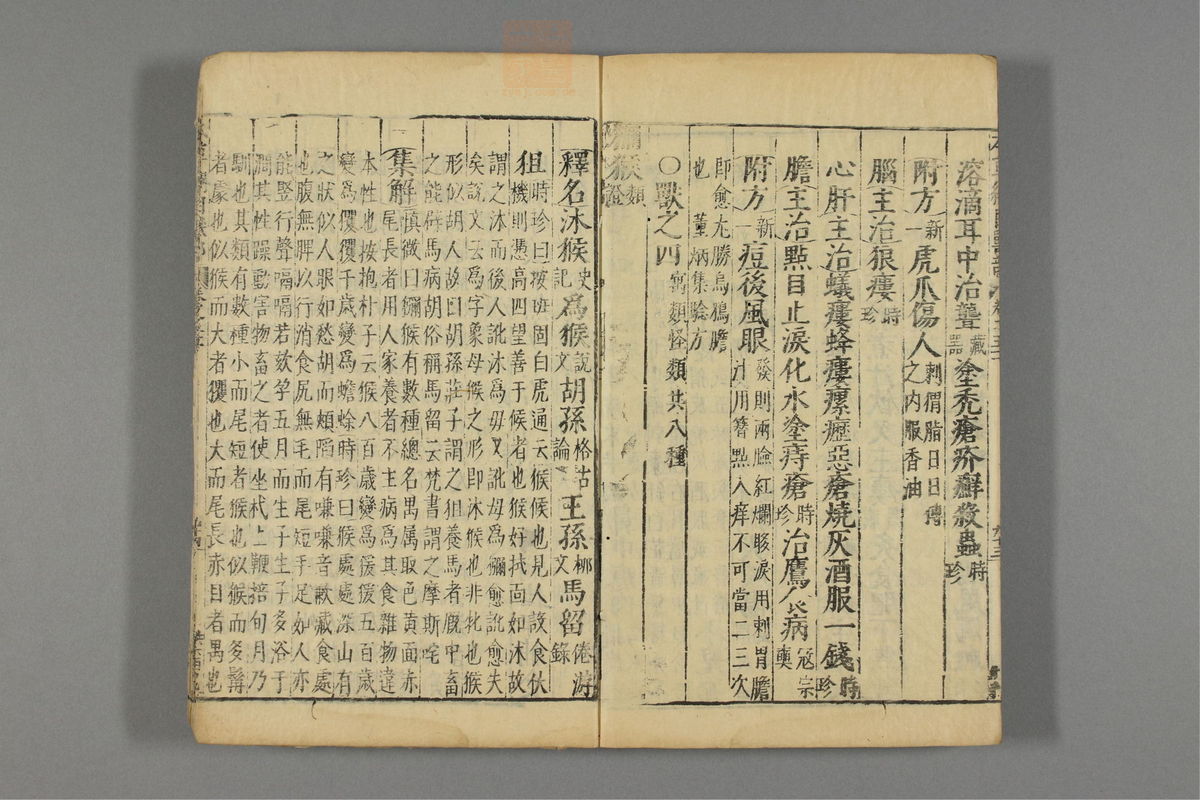 溶滴耳中治聾藏器塗禿瘡疥癬殺蟲時珍
附方新一虎爪傷人刺猬脂日日傅之内服香油
腦主治狼瘻時珍
心肝主治蟻瘻蜂瘻瘰癧惡瘡燒灰酒服一錢時珍
膽主治點目止淚化水塗痔瘡時珍治鷹食病寇宗奭
附方新一痘後風眼發則兩瞼紅爛眵淚用刺胃膽汁用簪點入痒不可當二三次
即愈尤勝烏鴉膽也董炳集驗方
○獸之四寓類怪類共八種
獼猴證類
釋名沐猴史記爲猴說文胡孫格古論王孫柳文馬留倦游錄
狙時珍曰按班固白虎通云猴候也見人設食伏機則憑高四望善于候者也猴好拭面如沐故
謂之沐而後人訛沐爲母又訛母爲獼愈訛愈夫矣說文云爲字象母猴之形即沐猴也非牝也猴
形似胡人故曰胡孫莊子謂之狙養馬者厩中畜之能辟馬病胡俗稱馬留云梵書謂之摩斯咤
集解慎微曰獼猴有數種總名禺属取色黄面赤尾長者用人家養者不主病爲其食雜物違
本性也按抱朴子云猴八百歲變爲猨猨五百歲變爲玃玃千歲變爲蟾蜍時珍曰猴處處深山有
之狀似人眼如愁胡而頰陷有嗛嗛音歉藏食處也腹無脾以行消食尻無毛而尾短手足如人亦
能竪行聲嗝嗝若欬孕五月而生子生子多浴于澗其性躁動害物畜之者使坐杙上鞭掊旬月乃
馴也其類有數種小而尾短者猴也似猴而多髯者豦也似猴而大者玃也大而尾長赤目者禺也